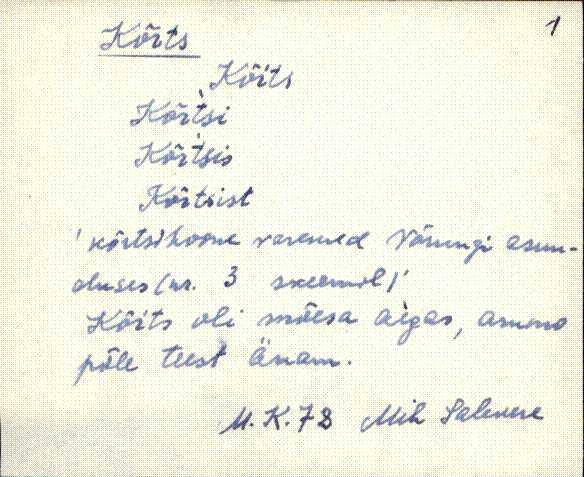 1
Kõrts
Kõits
Kõrtsi
Kõrtsis
Kõrtsist
'kõrtsihoone varemed Võrungi asun-
duses (nr. 3 skeemil)'
Kõits oli mõesa aigas, ammo
põle teest änam.
M.K.78 Mih Salevere